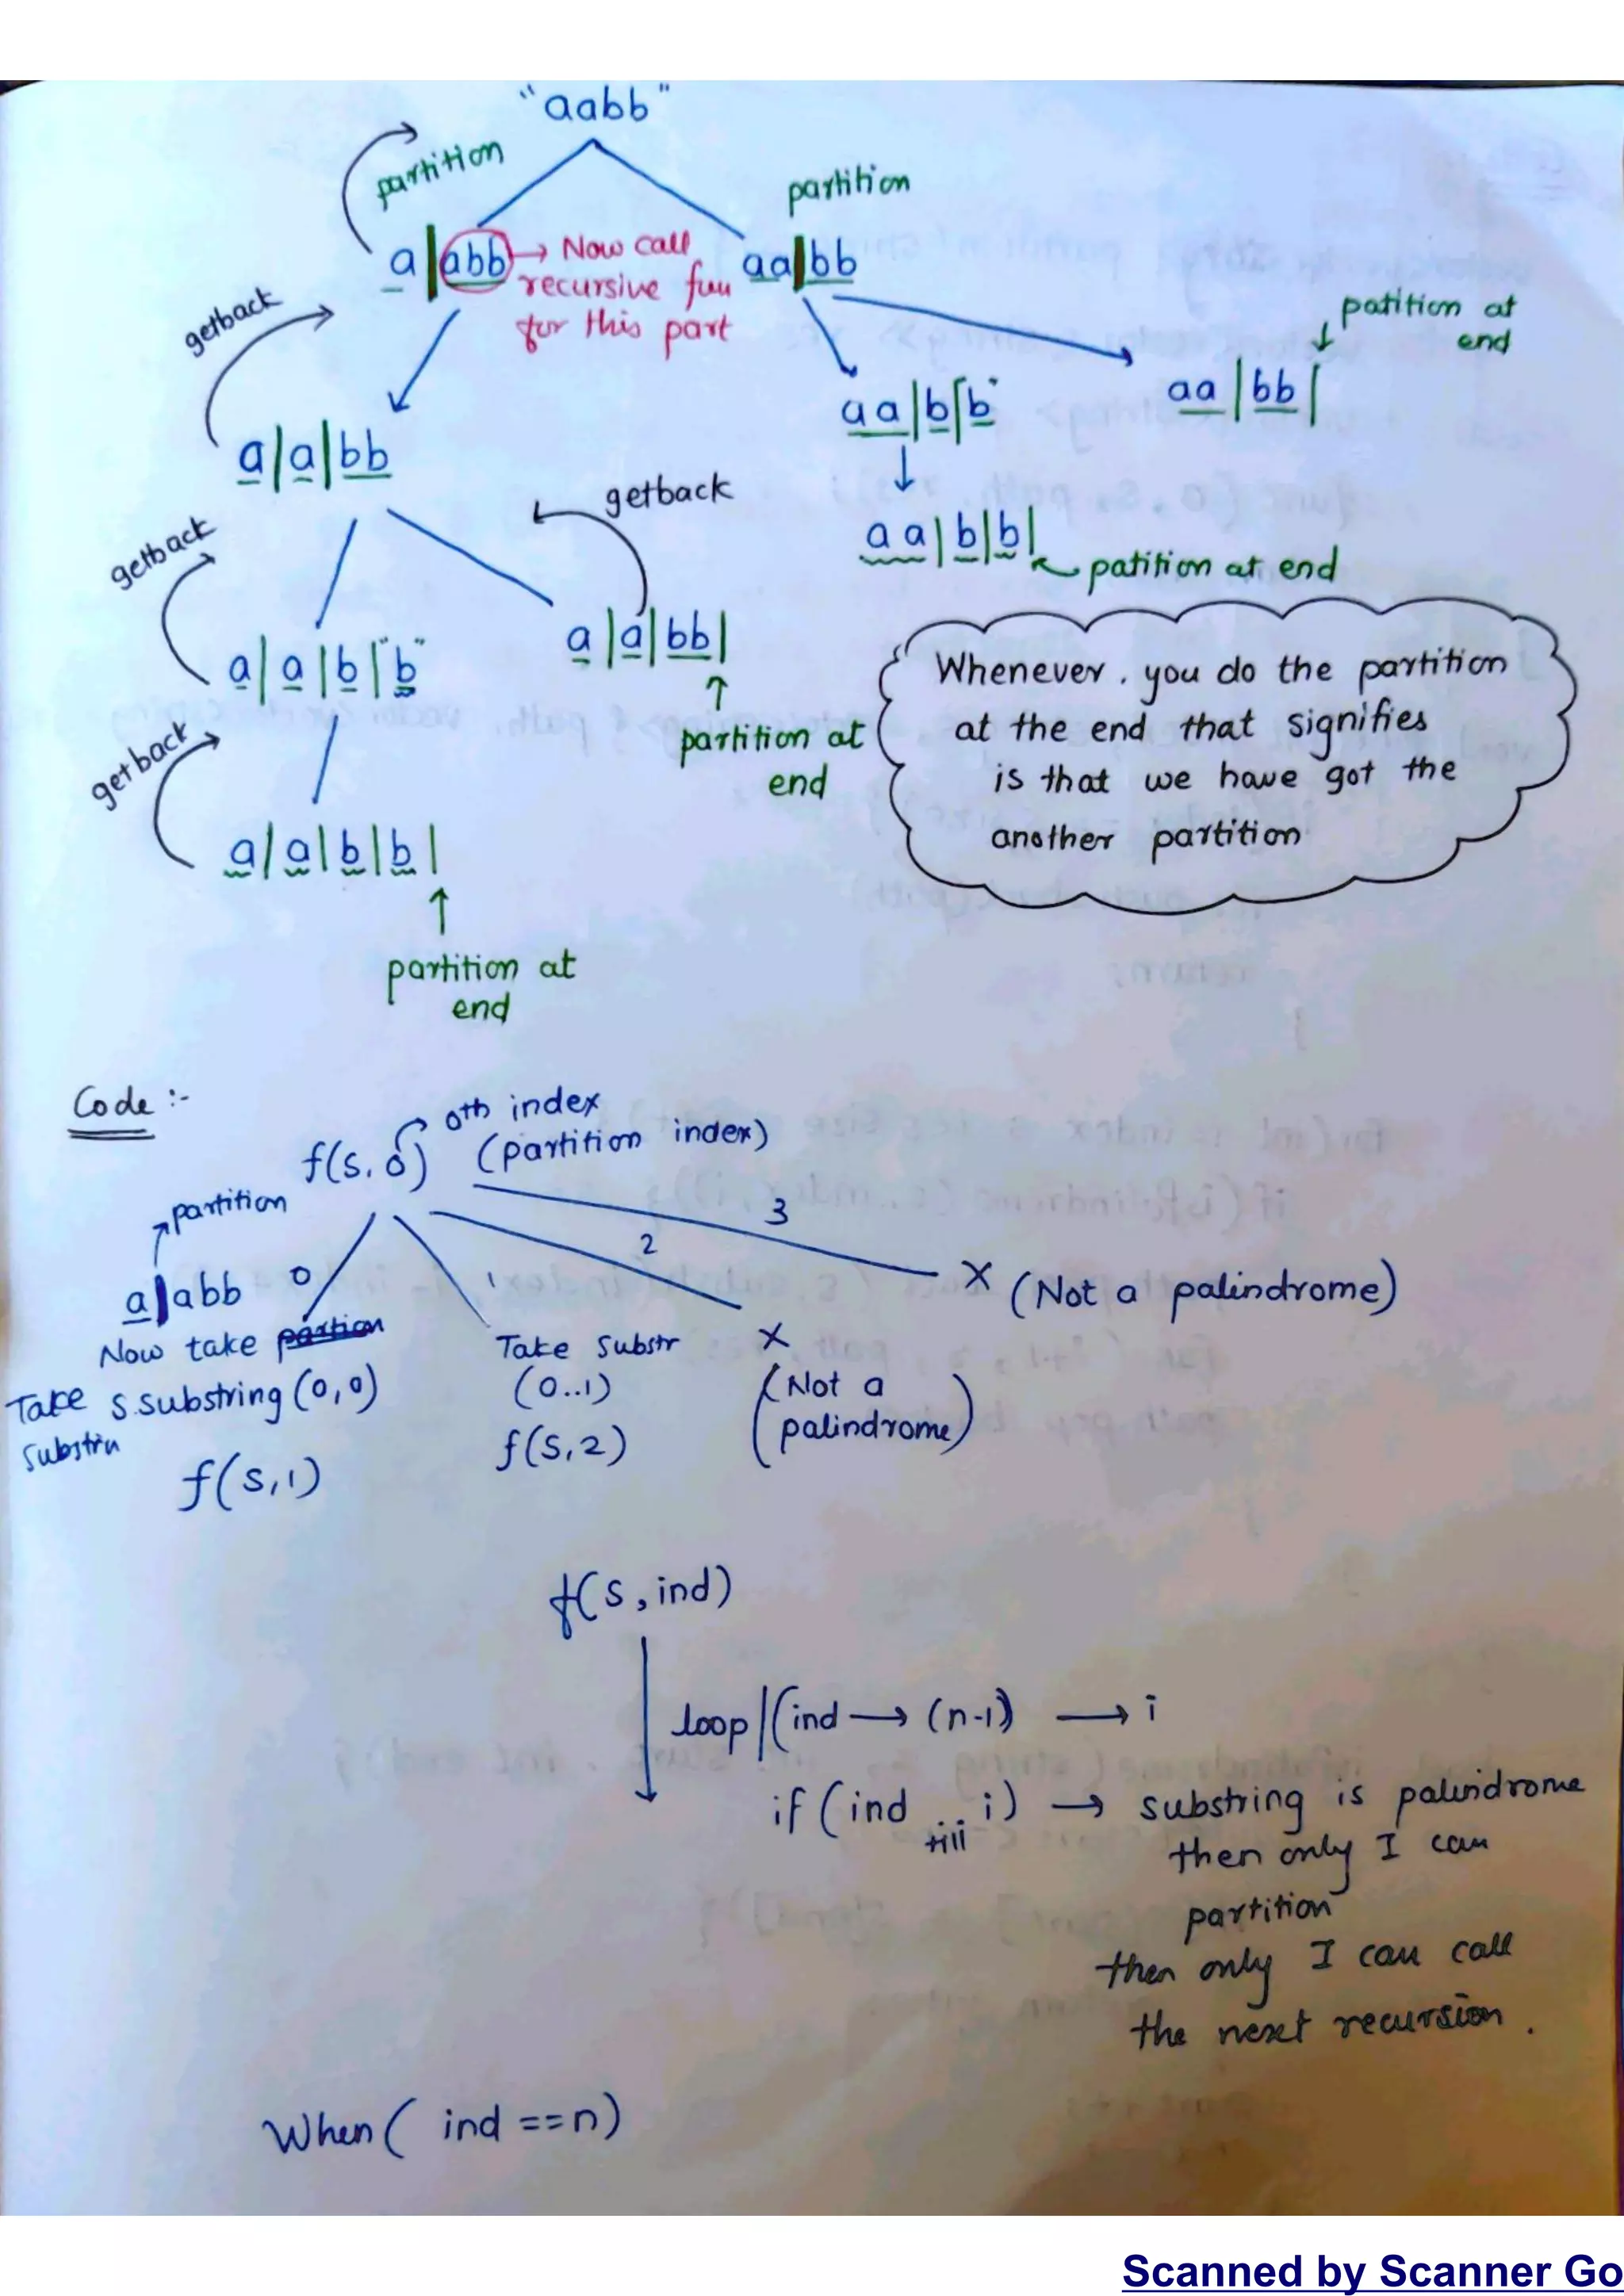 "aabb"
partition
partition
a|abb → Now call
recursive fun
for this part
aa|bb
getback
patition at
end
aa|b|b"
aa|bb|
a|a|bb
getback
aa|b|b|
patition at end
getback
a|a|b|"b"
a|a|bb|
partition at
end
Whenever. you do the partition
at the end that signifies
is that we have got the
another partition
getback
a|a|b|b|
partition at
end
Code :-
f(s, 0) 0th index
(partition index)
partition
a|abb
0
1
2
3
X (Not a palindrome)
Now take partion
Take s.substring (0,0)
substrin
f(s,1)
Take Substr
(0..1)
f(s,2)
X
(Not a
palindrome)
f(s, ind)
loop|(ind → (n-1)) → i
if (ind ... i) → substring is palindrome
till
then only I can
partition
then only I can call
the next recursion.
When( ind ==n)
Scanned by Scanner Go